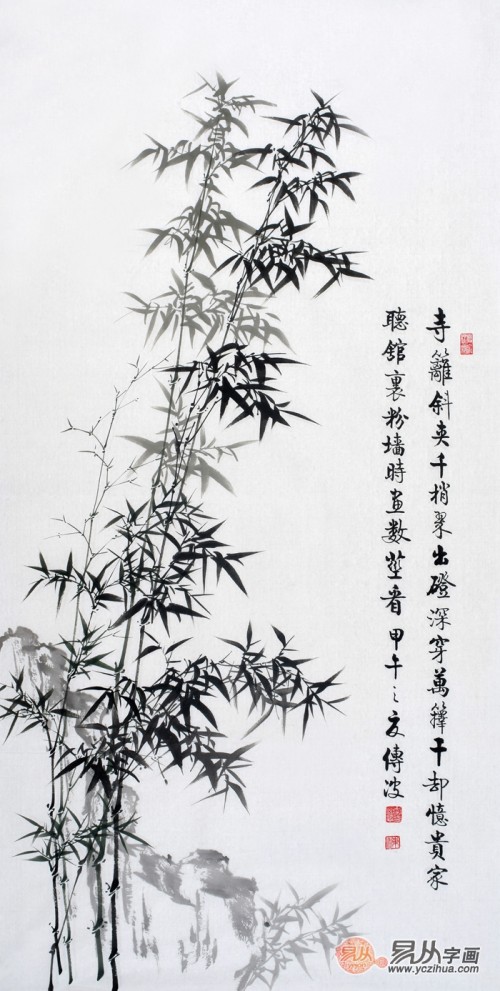 寺籬斜夹千梢翠出磴深穿萬籜干却憶貴家
聴舘裏粉墙時畫数莖看甲午之夏傳波
易从字画
www.yczihua.com